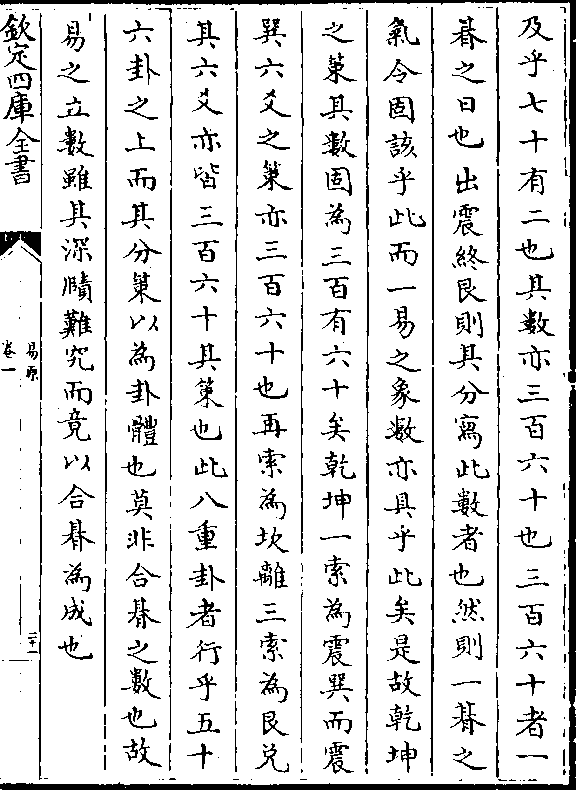 及乎七十有二也其數亦三百六十也三百六十者一
朞之日也出震終艮則其分寫此數者也然則一朞之
氣令固該乎此而一易之象數亦具乎此矣是故乾坤
之策其數固為三百有六十矣乾坤一索為震巽而震
巽六爻之策亦三百六十也再索為坎離三索為艮兌
其六爻亦皆三百六十其策也此八重卦者行乎五十
六卦之上而其分策以為卦體也莫非合朞之數也故
易之立數雖其深賾難究而竟以合朞為成也
欽定四庫全書
易原
卷一
三十一